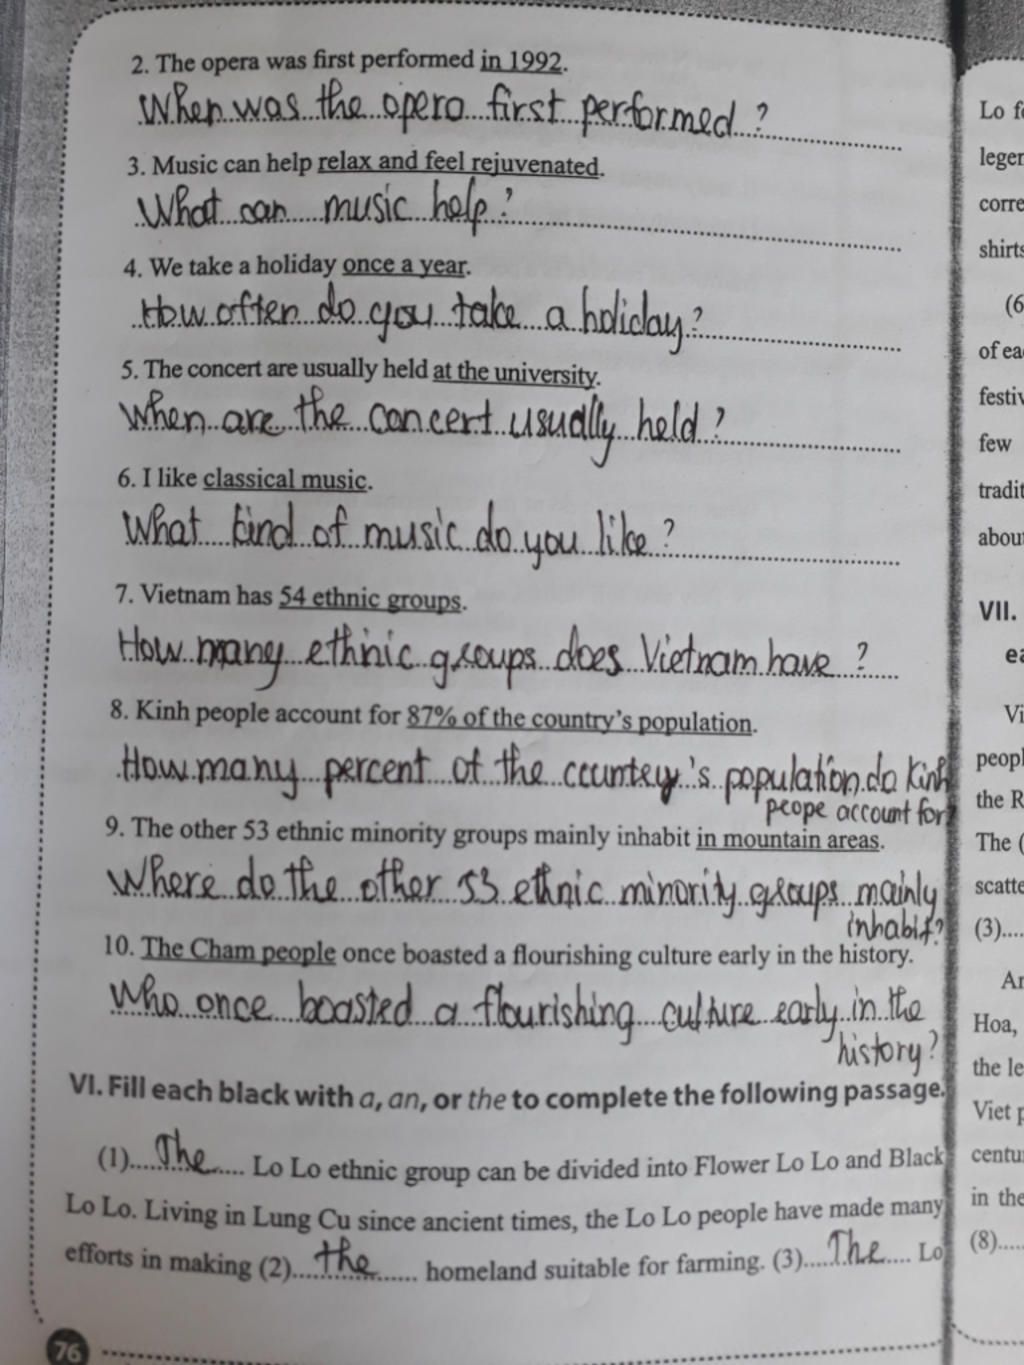 2. The opera was first performed in 1992.
When was the opera first performed?
3. Music can help relax and feel rejuvenated.
What can music help?
4. We take a holiday once a year.
How often do you take a holiday?
5. The concert are usually held at the university.
When are the concert usually held?
6. I like classical music.
What kind of music do you like?
7. Vietnam has 54 ethnic groups.
How many ethnic groups does Vietnam have?
8. Kinh people account for 87% of the country's population.
How many percent of the country's population do Kinh
peope account for?
9. The other 53 ethnic minority groups mainly inhabit in mountain areas.
Where do the other 53 ethnic minority groups mainly
inhabit?
10. The Cham people once boasted a flourishing culture early in the history.
Who once boasted a flourishing culture early in the
history?
VI. Fill each black with a, an, or the to complete the following passage.
(1)....The.... Lo Lo ethnic group can be divided into Flower Lo Lo and Black
Lo Lo. Living in Lung Cu since ancient times, the Lo Lo people have made many
efforts in making (2)....the.... homeland suitable for farming. (3)....The.... Lo
76
Lo
shirts
(6
of ea
few
VII.
Vi
the R
The (
(3)....
Hoa,
the le
Viet
in the
(8)....